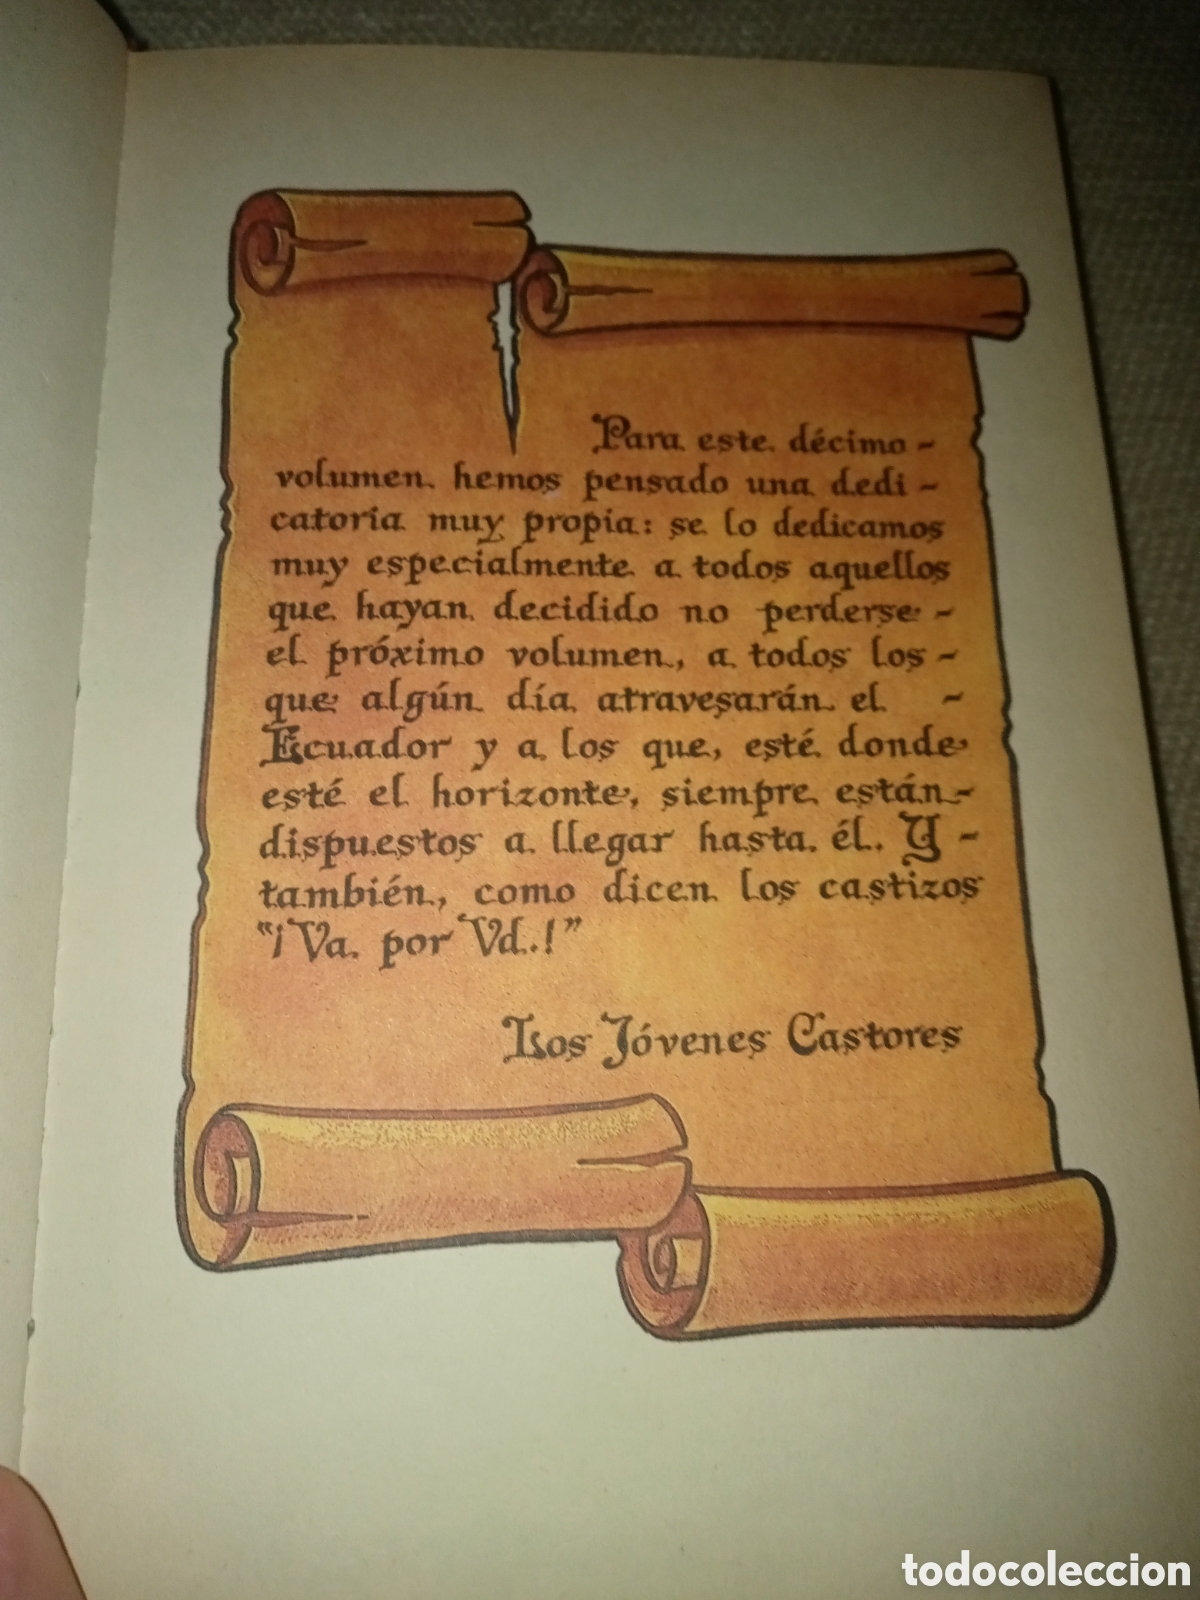 Para este décimo -
volumen hemos pensado una dedi -
catoria muy propia: se lo dedicamos
muy especialmente a todos aquellos
que hayan decidido no perderse -
el próximo volumen, a todos los -
que algún día atravesarán el -
Ecuador y a los que, esté donde
esté el horizonte, siempre están -
dispuestos a llegar hasta él. Y -
también, como dicen los castizos
"¡Va por Vd.!"
Los Jóvenes Castores
todocoleccion